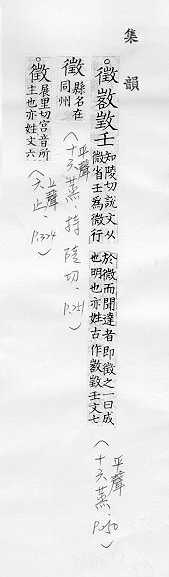 集韻
徵 知陵切說文从
微省壬爲徵行
於微而聞達者即徵之一曰成
也明也亦姓古作 文七
(平聲
十六蒸、P.250)
徵 縣名在
同州
(平聲
十六蒸、持陵切、P.251)
徵 展里切宮音所
主也亦姓文六
(上聲
六止、P.324)